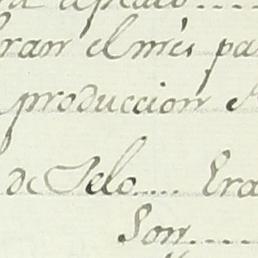 ran el mes pa
produccion
de Selo.... Era
Son....